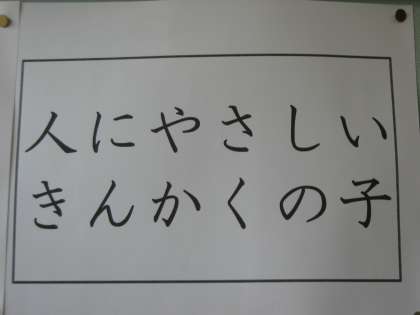 人にやさしい
きんかくの子